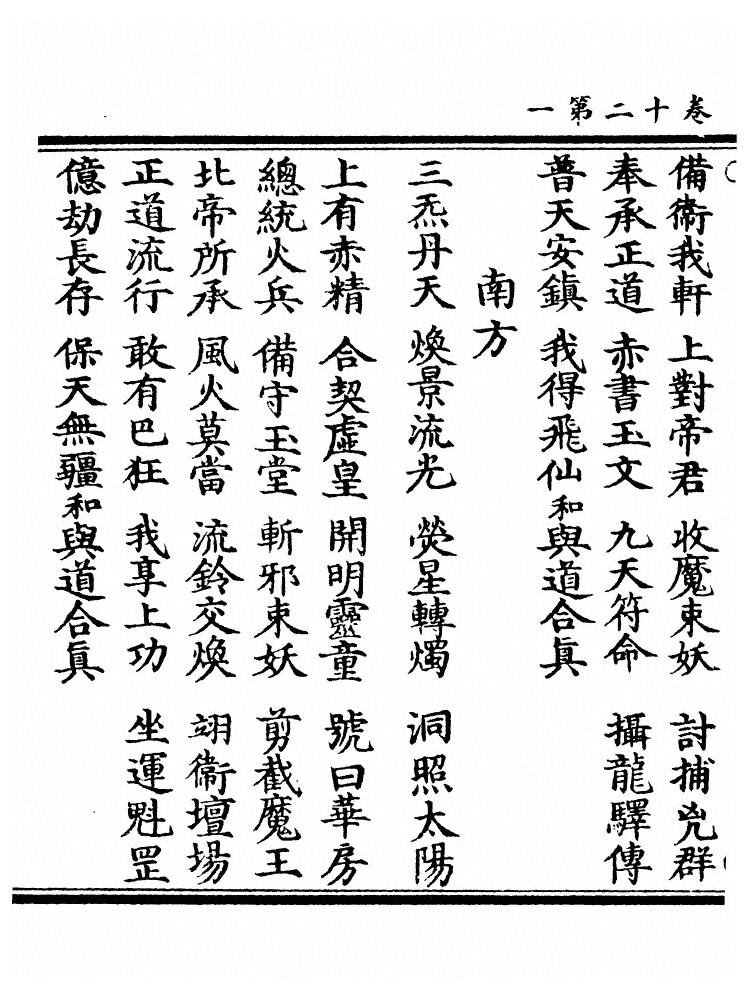 卷十二第一
備衛我軒　上對帝君　收魔束妖　討捕兇群
奉承正道　赤書玉文　九天符命　攝龍驛傳
普天安鎮　我得飛仙和與道合真
南方
三炁丹天　煥景流光　熒星轉燭　洞照太陽
上有赤精　合契虛皇　開明靈童　號曰華房
總統火兵　備守玉堂　斬邪束妖　剪截魔王
北帝所承　風火莫當　流鈴交煥　翊衛壇場
正道流行　敢有巴狂　我享上功　坐運魁罡
億劫長存　保天無疆和與道合真